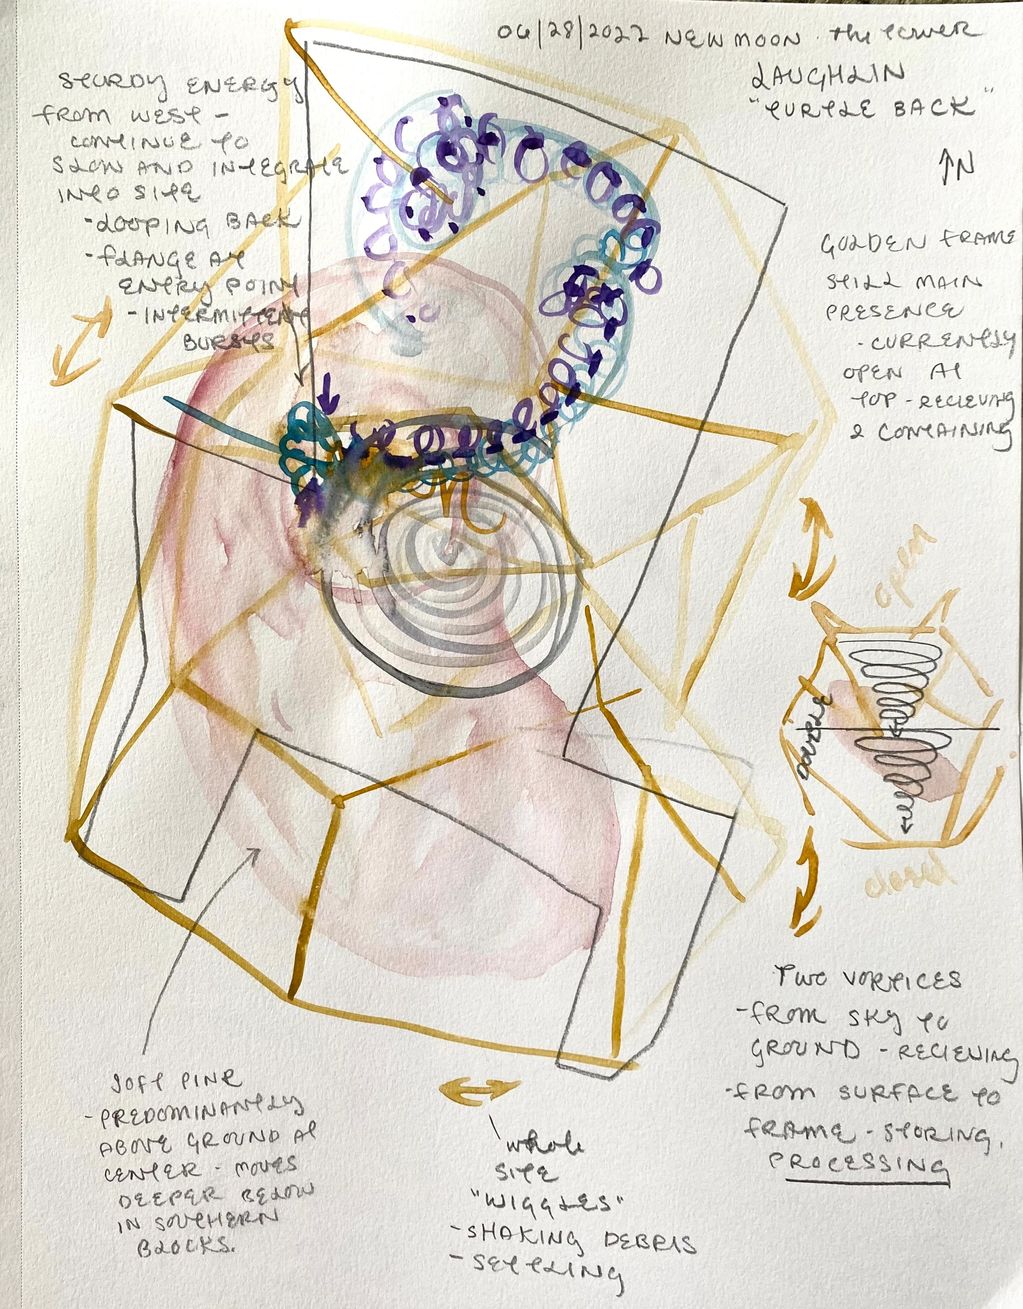 06/28/2022 NEW MOON · the tower
LAUGHLIN
"TURTLE BACK"
N
STURDY ENERGY
FROM WEST -
CONTINUE TO
SLOW AND INTEGRATE
INTO SITE
- LOOPING BACK
- FLANGE AT
ENTRY POINT
- INTERMITTENT
BURSTS
GOLDEN FRAME
STILL MAIN
PRESENCE
- CURRENTLY
OPEN AT
TOP - RECIEVING
& CONTAINING
open
double
closed
TWO VORTICES
- FROM SKY TO
GROUND - RECIEVING
- FROM SURFACE TO
FRAME - STORING,
PROCESSING
SOFT PINK
- PREDOMINANTLY
ABOVE GROUND AT
CENTER - MOVES
DEEPER BELOW
IN SOUTHERN
BLOCKS.
whole
SITE
"WIGGLES"
- SHAKING DEBRIS
- SETTLING